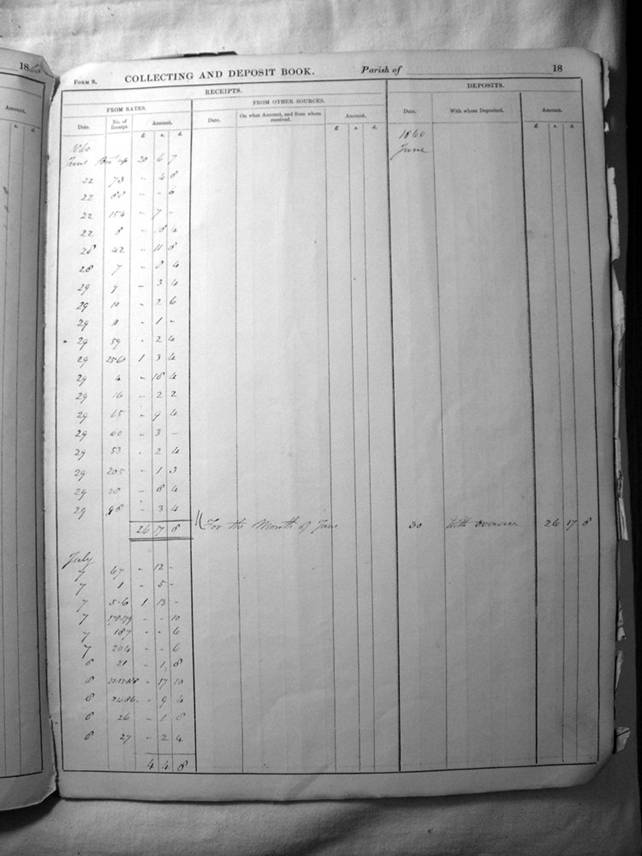 18
FORM S. COLLECTING AND DEPOSIT BOOK. Parish of 18
RECEIPTS. DEPOSITS.
FROM RATES. FROM OTHER SOURCES.
Date. No. of Receipt Amount. Date. On what Amount, and from whom received. Amount. Date. With whom Deposited. Amount.
Amount.
£ s. d. £ s. d. £ s. d.
s. d.
1860 1860
June 20 6 7 June
22 73 - 4 8
22 - - 6
22 154 - 7 -
22 8 - 4
28 42 - 11 8
28 7 - 8 4
29 9 - 3 4
29 10 - 2 6
29 - 1 -
29 59 - 2 4
29 1 3 4
29 4 - 4
29 16 - 2 2
29 65 - 9 4
29 60 - 3 -
29 53 - 2 4
29 205 - 1 3
29 - 8 4
29 - 3 4
26 17 8 For the Month of June 30 With overseer 26 17 8
July
7 67 - 12 -
7 1 - 5 -
7 1 13 -
7 - - 10
7 187 - - 6
7 204 - - 6
8 21 - 1 8
8 - 17 10
8 - 9 4
8 26 - 1 8
8 27 - 2 4
4 4 8